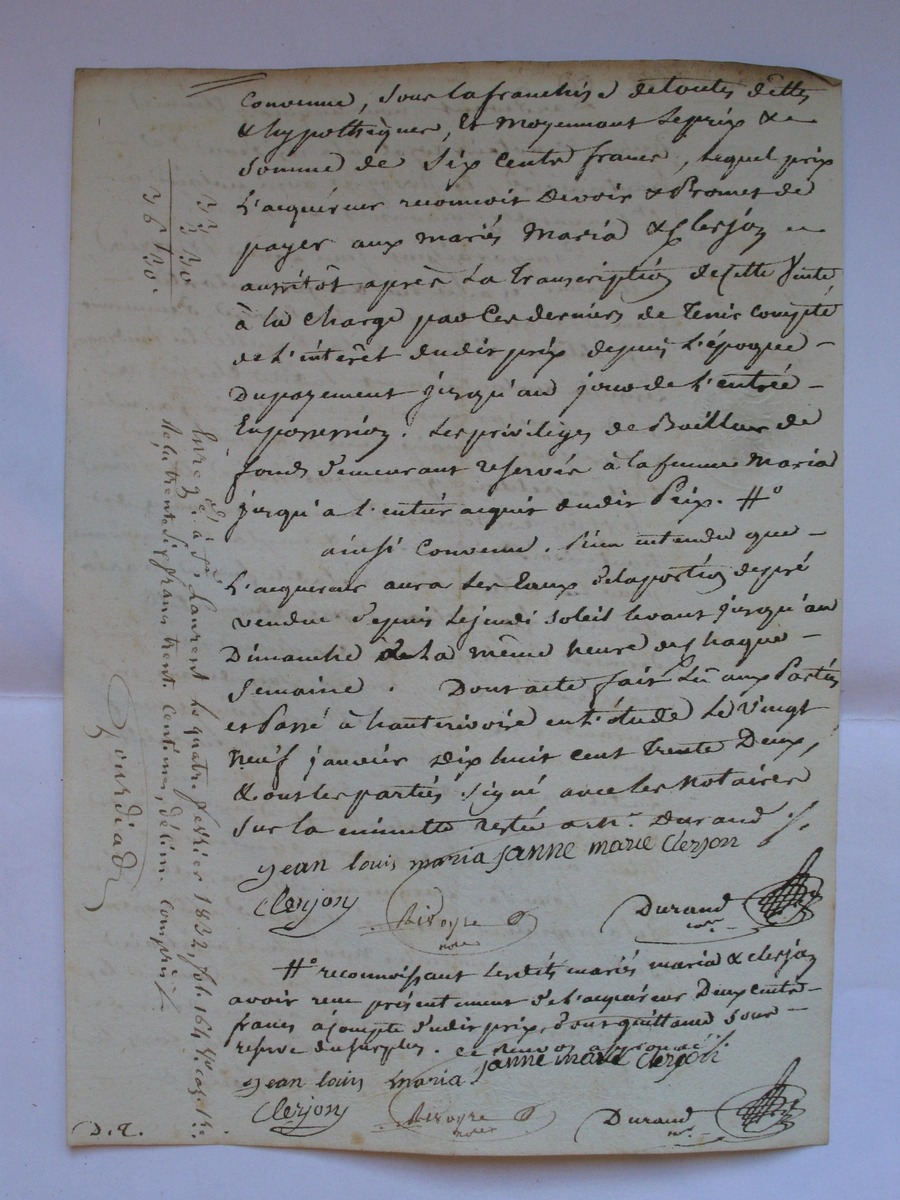 Convenue, Sous la franchise de toutes dettes
& hypothèques, Et moyennant le prix & –
Somme de Six Cents francs, lequel prix
L'acquéreur reconnoit devoir & Promet de
payer aux mariés Maria & Clerjon –
aussitôt après La Transcription de Cette Vente
à la Charge par Ces derniers de Tenir compte
de L'intérêt dudit prix depuis L'époque –
Du payement jusqu'au jour de L'entrée –
En possession. Les privilèges de Bailleur de
fonds demeurant reservés à la femme Maria
jusqu'à l'entier acquit dudit Prix. #o
ainsi Convenu. bien entendu que –
L'acquereur aura Les Eaux de la portion de pré
vendue depuis Le jeudi Soleil levant jusqu'au
Dimanche à La même heure de Chaque –
Semaine. Dont acte fait Lu aux Parties
et Passé à hauterivoire en L'étude Le vingt
neuf janvier dix huit cent Trente Deux,
& ont les parties Signé avec les notaires
Sur la minutte restée a Mr. Durand ./.
jean louis maria janne marie clerjon
Clerjon
Rivoyre
nore
Durand
nre.
#o reconnoissant lesdits mariés maria & clerjon
avoir reçu présentement de L'acquéreur Deux Cents –
francs à Compte dudit prix, dont quittance Sous –
reserve du Surplus. Ce renvoi approuvé ./.
jean louis maria janne marie clerjon
Clerjon
Rivoyre
notre
Durand
nre.
33
3 30
36 30.
Enregé. à St. Laurent Le quatre fevrier 1832, fol. 164 Vo Cas. 1re.
Reçu trente Six francs trent. centimes, décime compris ./.
Gourdiad
D. R.